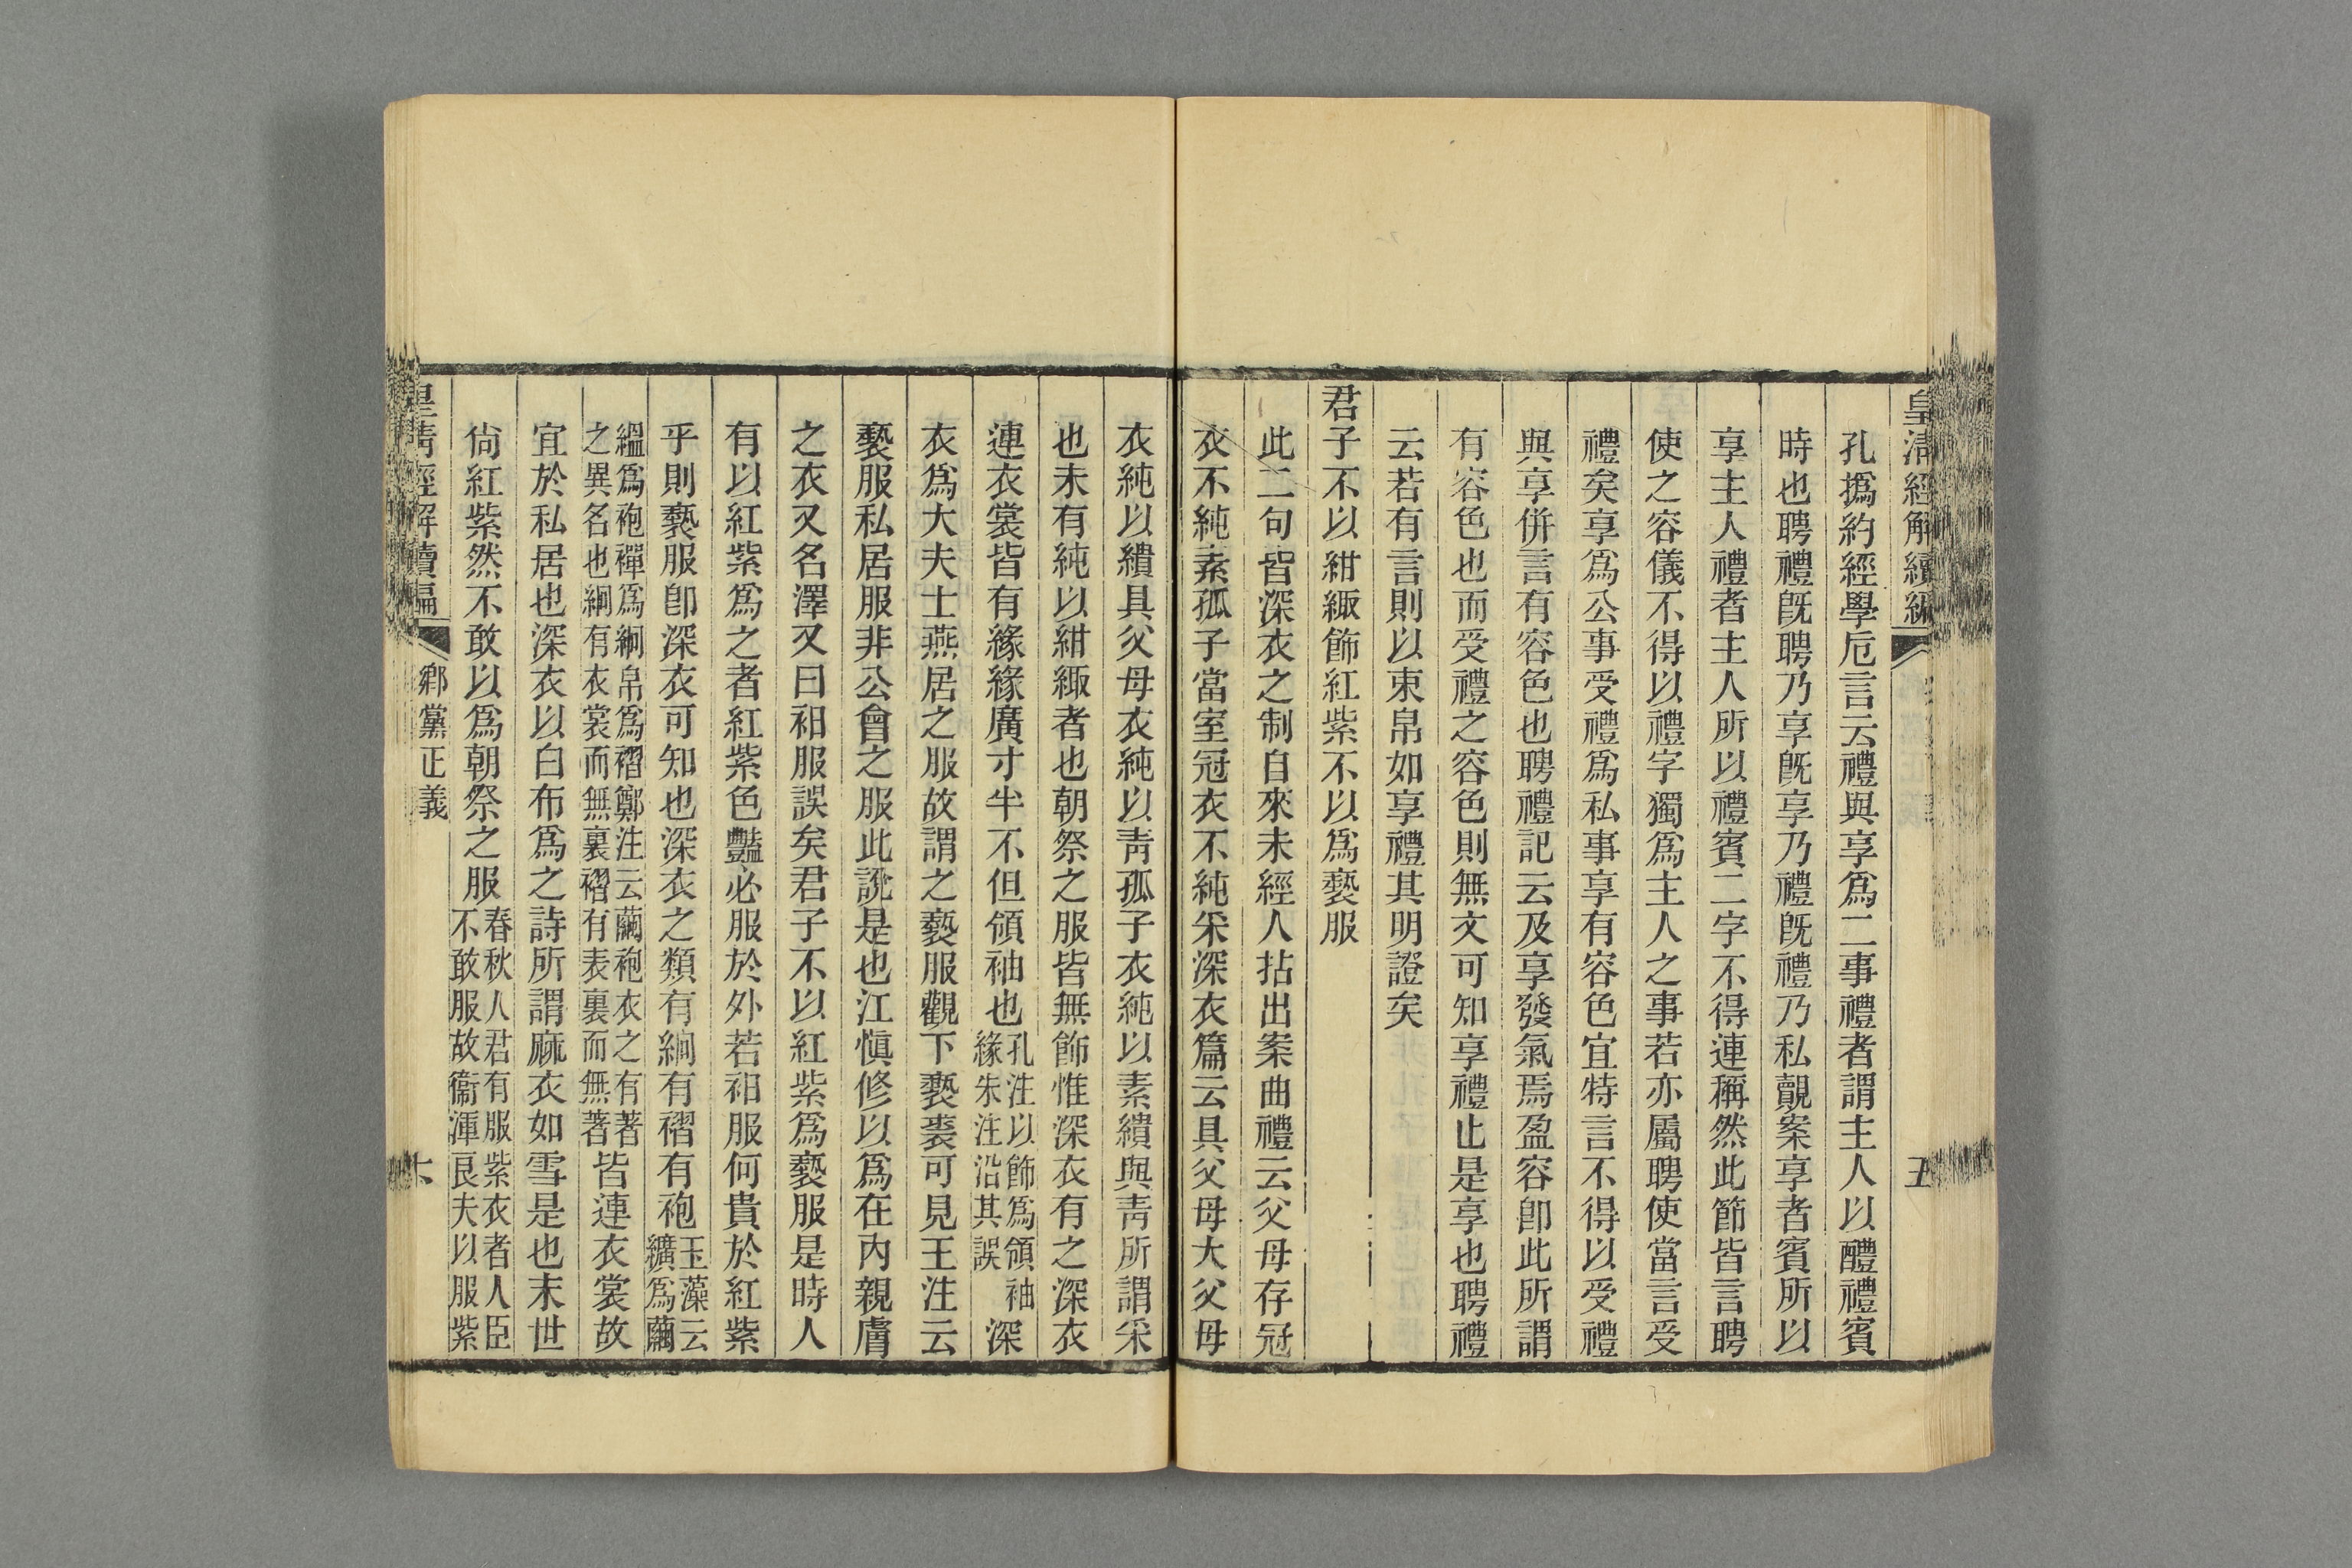 皇清經解續編
五
孔撝約經學卮言云禮與享爲二事禮者謂主人以醴禮賓
時也聘禮旣聘乃享旣享乃禮旣禮乃私覿案享者賓所以
享主人禮者主人所以禮賓二字不得連稱然此節皆言聘
使之容儀不得以禮字獨爲主人之事若亦屬聘使當言受
禮矣享爲公事受禮爲私事享有容色宜特言不得以受禮
與享併言有容色也聘禮記云及享發氣焉盈容卽此所謂
有容色也而受禮之容色則無文可知享禮止是享也聘禮
云若有言則以束帛如享禮其明證矣
君子不以紺緅飾紅紫不以爲褻服
此二句皆深衣之制自來未經人拈出案曲禮云父母存冠
衣不純素孤子當室冠衣不純采深衣篇云具父母大父母
衣純以繢具父母衣純以靑孤子衣純以素繢與靑所謂采
也未有純以紺緅者也朝祭之服皆無飾惟深衣有之深衣
連衣裳皆有緣緣廣寸半不但領袖也孔注以飾爲領袖緣朱注沿其誤深
衣爲大夫士燕居之服故謂之褻服觀下褻裘可見王注云
褻服私居服非公會之服此說是也江愼修以爲在內親膚
之衣又名澤又曰衵服誤矣君子不以紅紫爲褻服是時人
有以紅紫爲之者紅紫色豔必服於外若衵服何貴於紅紫
乎則褻服卽深衣可知也深衣之類有絅有褶有袍玉藻云纊爲繭
縕爲袍襌爲絅帛爲褶鄭注云繭袍衣之有著之異名也絅有衣裳而無裏褶有表裏而無著皆連衣裳故
宜於私居也深衣以白布爲之詩所謂麻衣如雪是也末世
尙紅紫然不敢以爲朝祭之服春秋人君有服紫衣者人臣不敢服故衞渾良夫以服紫
皇清經解續編
鄕黨正義
六